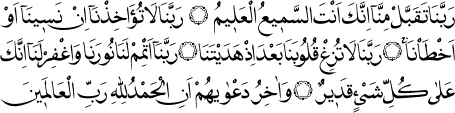 رَبَّنَا تَقَبَّلْ مِنَّا اِنَّكَ اَنْتَ السَّمِيعُ الْعَلِيمُ ۝ رَبَّنَا لَا تُؤَاخِذْنَا اِنْ نَسِينَا اَوْ
اَخْطَأْنَا ۝ رَبَّنَا لَا تُزِغْ قُلُوبَنَا بَعْدَ اِذْ هَدَيْتَنَا ۝ رَبَّنَا اَتْمِمْ لَنَا نُورَنَا وَاغْفِرْ لَنَا اِنَّكَ
عَلٰى كُلِّ شَيْءٍ قَدِيرٌ ۝ وَاٰخِرُ دَعْوٰيهُمْ اَنِ الْحَمْدُ لِلّٰهِ رَبِّ الْعَالَمِينَ